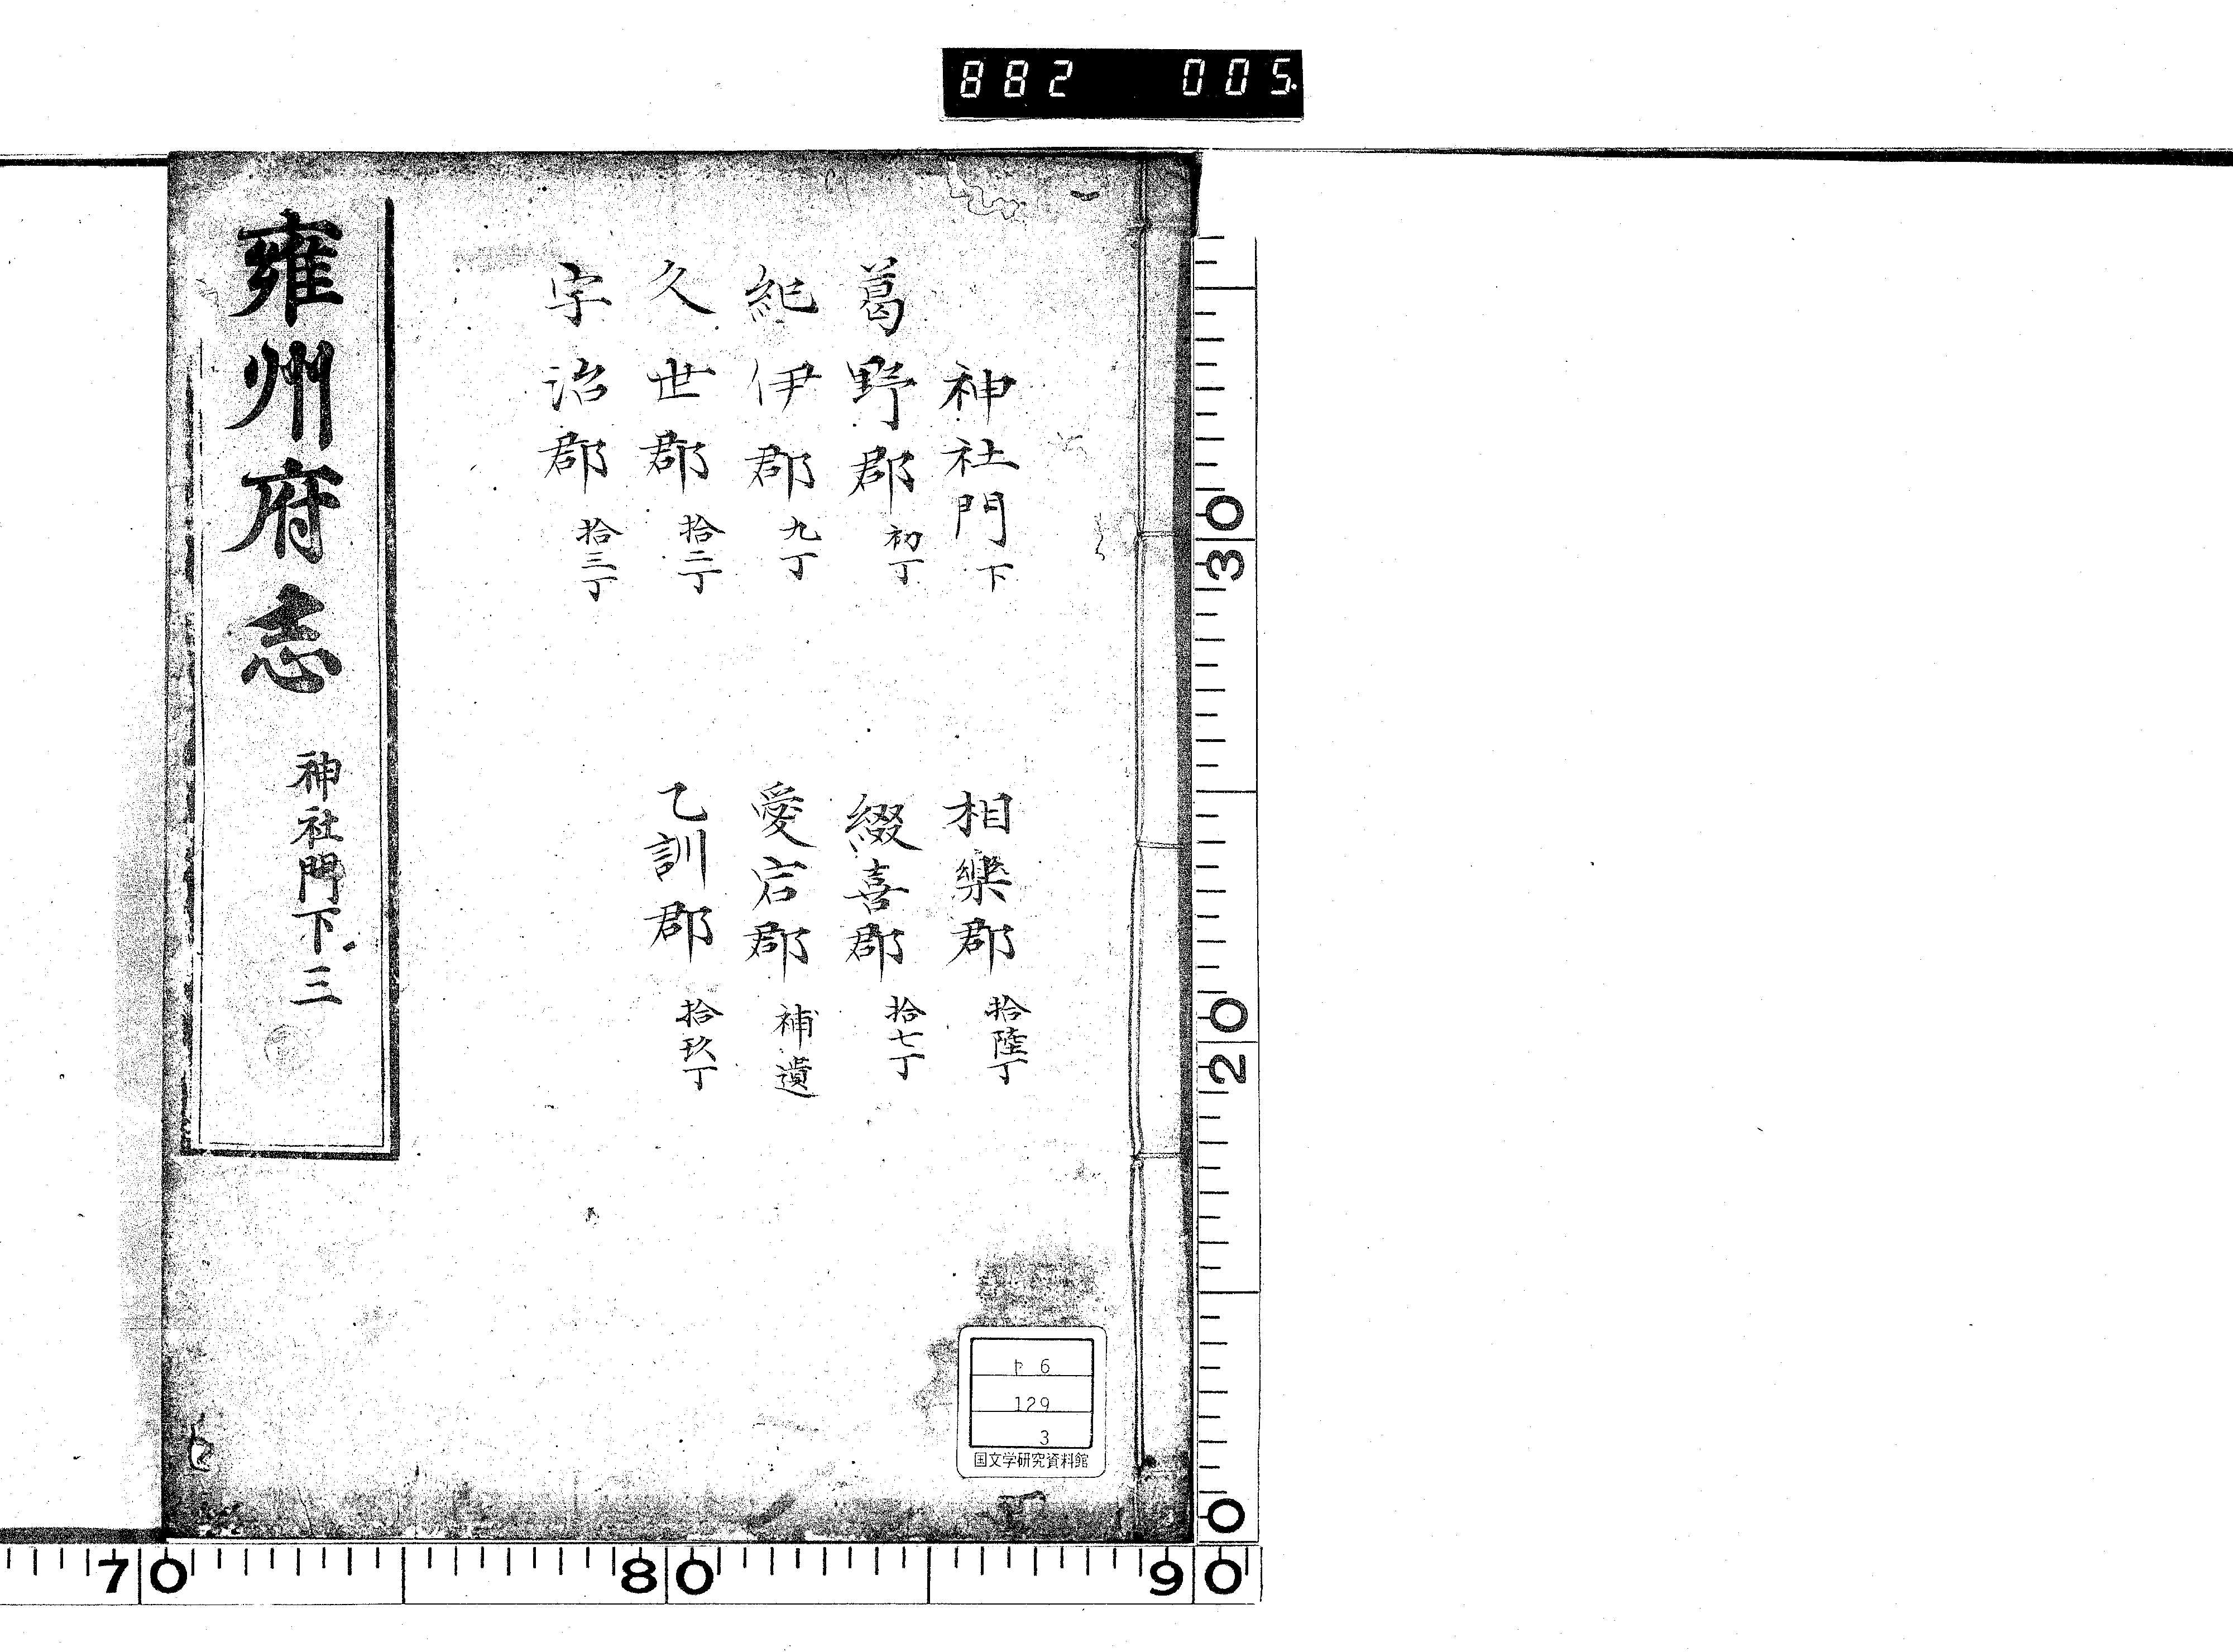 882 005.
神社門下
葛野郡 初丁
紀伊郡 九丁
久世郡 拾二丁
宇治郡 拾三丁
相樂郡 拾陸丁
綴喜郡 拾七丁
愛宕郡 補遺
乙訓郡 拾玖丁
雍州府志 神社門下 三
ヤ 6
129
3
国文学研究資料館
30
20
0
70
80
90